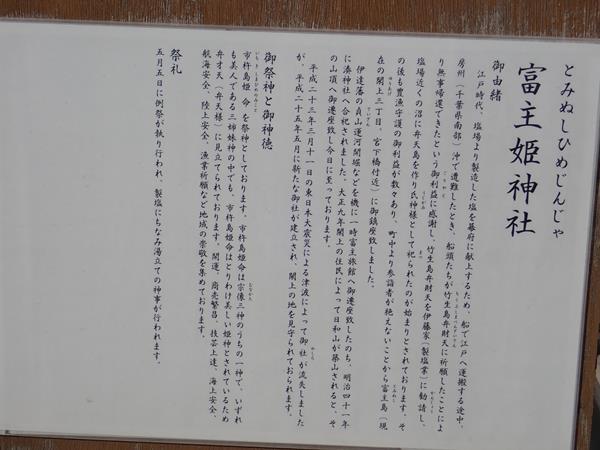 とみぬしひめじんじゃ
富主姫神社
御由緒
江戸時代、塩場より製造した塩を幕府に献上するため、船で江戸へ運搬する途中、
房州(千葉県南部)沖で遭難したとき、船頭たちが竹生島弁財天に祈願したことによ
り無事帰還できたという御利益に感謝し、竹生島弁財天を伊藤家(製塩業)に勧請し、
塩場近くの沼に弁天島を作り氏神様として祀られたのが始まりとされております。そ
の後も豊漁守護の御利益が数々あり、町中より参詣者が絶えないことから富主島(現
在の閖上三丁目、宮下橋付近)に御鎮座致しました。
伊達藩の貞山運河開堀などを機に一時富主旅館へ御遷座致したのち、明治四十一年
に湊神社へ合祀されました。大正九年閖上の住民によって日和山が築山されると、そ
の山頂へ御遷座致し今日に至っております。
平成二十三年三月十一日の東日本大震災による津波によって御社が流失しました
が、平成二十五年五月に新たな御社が建立され、閖上の地を見守られておられます。
御祭神と御神徳
市杵島姫命を祭神としております。市杵島姫命は宗像三神のうちの一神で、いずれ
も美人である三姉妹神の中でも、市杵島姫命はとりわけ美しい姫神とされているため
弁才天(弁天様)に見立てられております。開運、商売繁昌、技芸上達、海上安全、
航海安全、陸上安全、漁業祈願など地域の崇敬を集めております。
祭礼
五月五日に例祭が執り行われ、製塩にちなみ湯立ての神事が行われます。